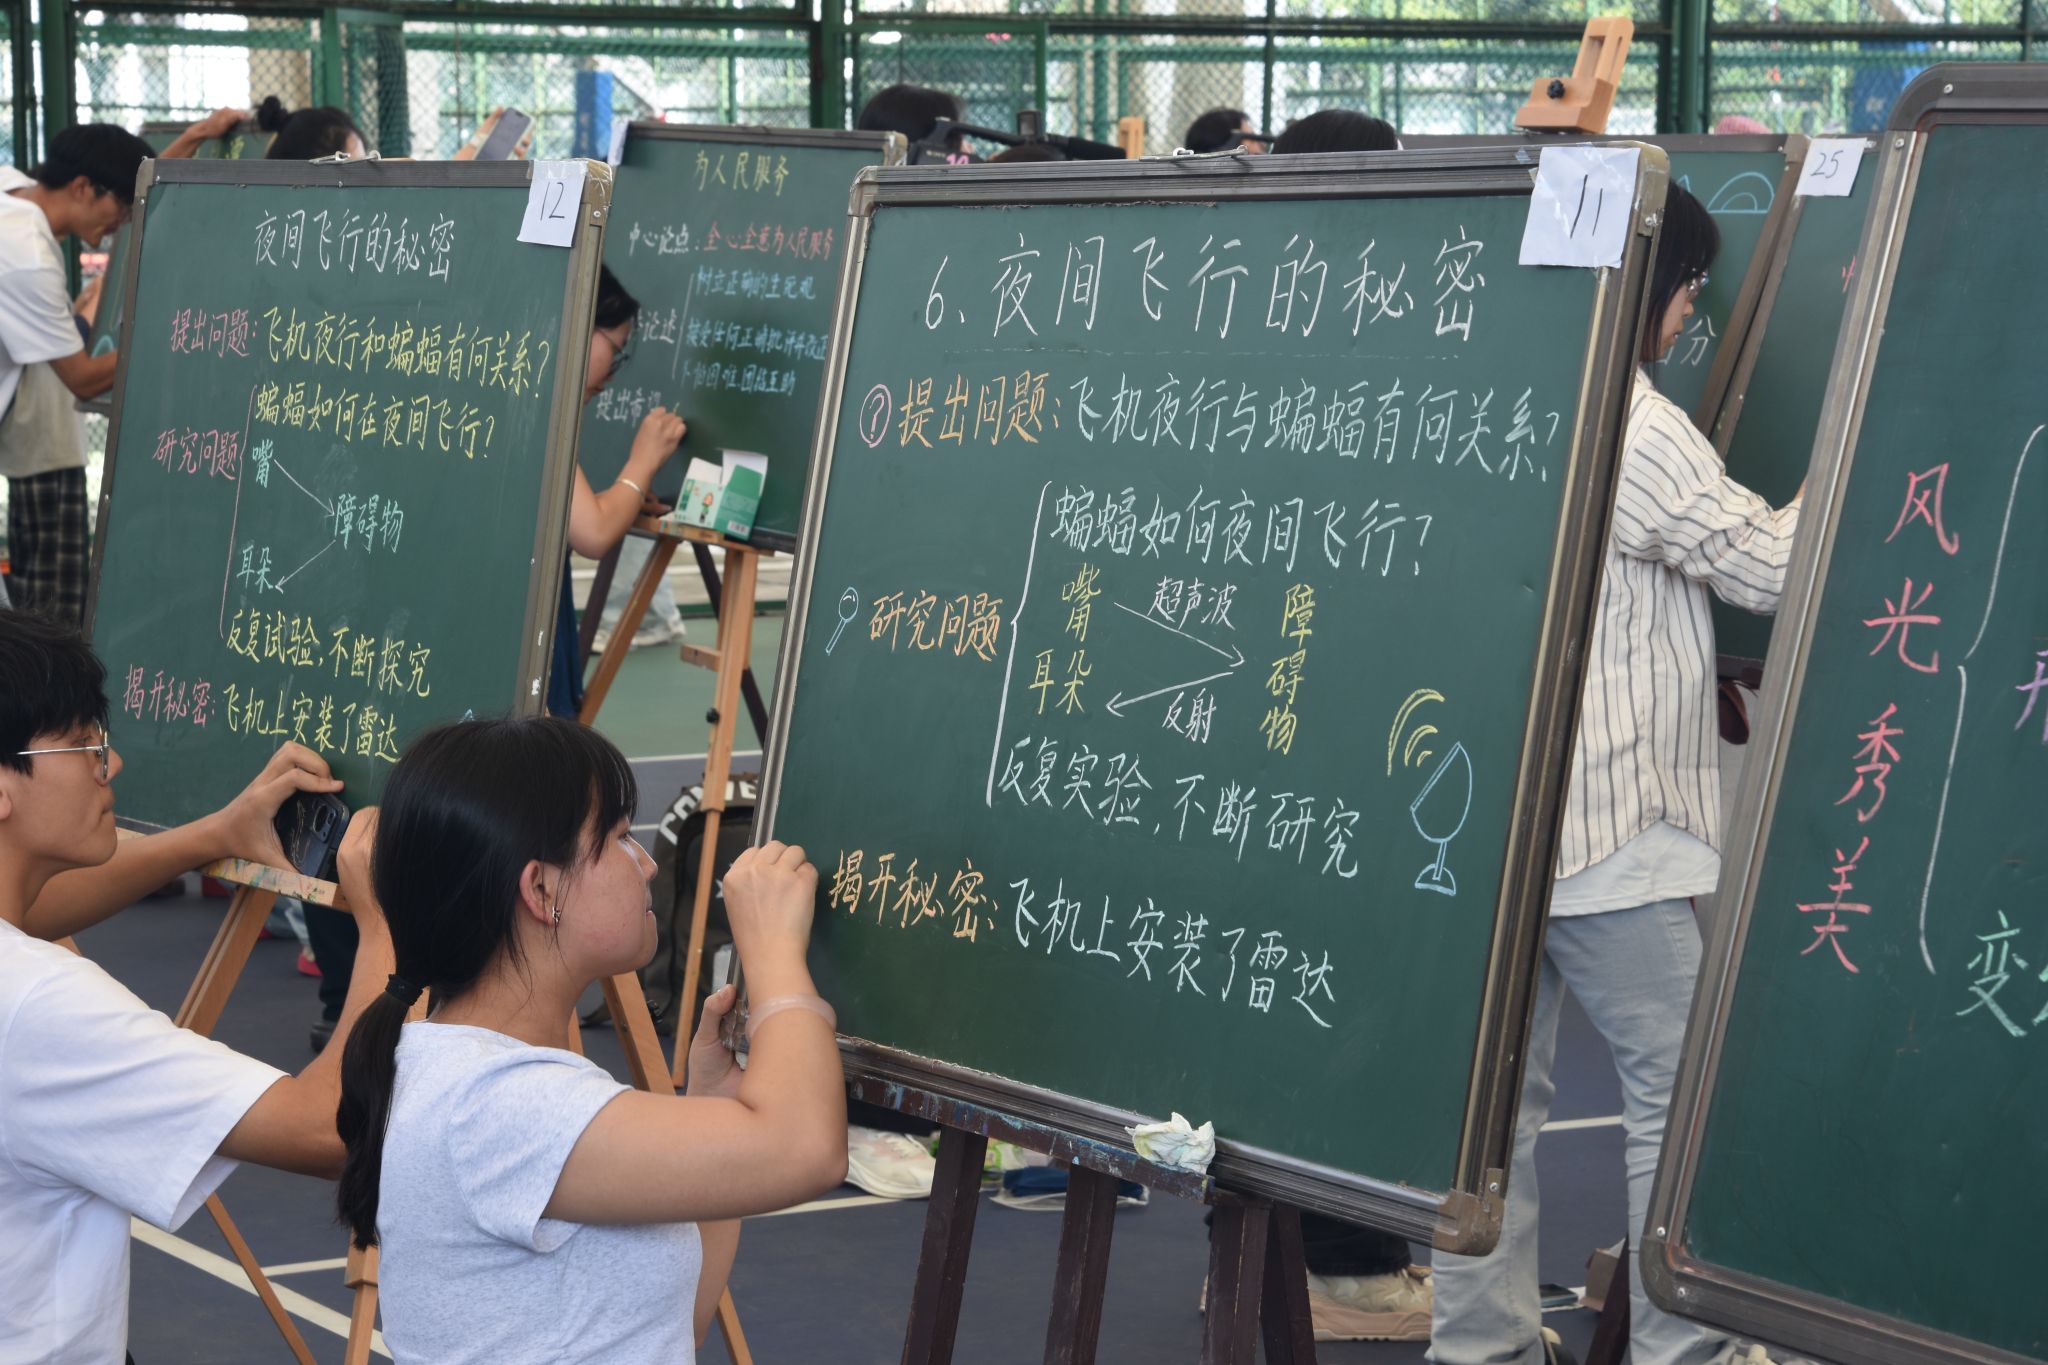 12
夜间飞行的秘密
提出问题:飞机夜行和蝙蝠有何关系?
研究问题
蝙蝠如何在夜间飞行?
嘴
障碍物
耳朵
反复试验,不断探究
揭开秘密:飞机上安装了雷达
为人民服务
中心论点:全心全意为人民服务
树立正确的生死观
论述
接受任何正确批评并改正
团结互助
提出希望
11
6、夜间飞行的秘密
?提出问题:飞机夜行与蝙蝠有何关系?
研究问题
蝙蝠如何夜间飞行?
嘴 超声波 障碍物
耳朵 反射
反复实验,不断研究
揭开秘密:飞机上安装了雷达
25
分
风光秀美
变